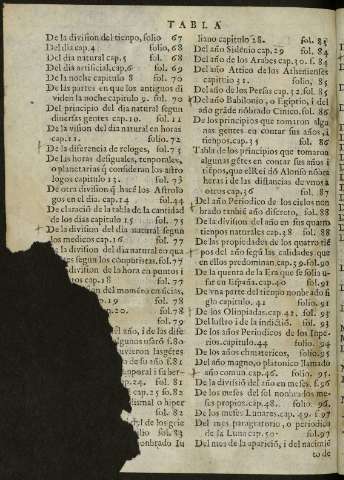 TABLA
De la division del tiempo, folio 67
Del dia cap.4 folio, 68
Del dia natural cap.5 fol. 68
Del dia artificial, cap.6 fol. 69
De la noche capitulo 8 folio. 70
De las partes en que los antiguos di
viden la noche capitulo 9. fol. 70
Del principio del dia natural segun
diuersas gentes cap.10. fol. 11
De la vision del dia natural en horas
cap.11. folio. 72
De la diferencia de reloges, fol.75
De las horas desiguales, temporales,
o planetarias q̃ consideran los astro
logos capitulo 13. fol. 73
De otra division q̃ hacẽ los Astrolo
gos en el dia. cap 14 fol.44
De claració de la tabla de la cantidad
de los dias capitulo 15 fol. 75
De la division del dia natural segun
los medicos cap.16 fol. 77
De la division del dia natural en qua
segun los computistas. fol.77
division de la hora en puntos i
cap.18 fol. 77
del momẽto en ucias,
.19 fol. 78
.20. fol. 78
fol. 79
el año, i de las dife
algunos usarõ f.80
uvieron las gẽtes
de su año f.81
mporal i sa her-
.24. fol. 81
cap.25 fo.82
dismal o hiper
fol. 82
del de los grie
folio 83
nombrado Iu
liano capitulo 28. fol. 83
Del año Sidẽrio cap.29 fol. 84
Del año de los Arabes cap.30. f. 84
Del año Attico de los Athenienses
capitulo 31. folio, 85
Del año de los Persas cap.32. fol. 85
Del año Babilonio, o Egiptio, i del
año grãde nõbrado Cinico. fol. 86
De los principios que tomaron algu
nas gentes en contar sus años, i
tiẽpos, cap.35 fol. 86
Tabla de los principios que tomaron
algunas gẽtes en contar sus años i
tiẽpos, que el Rei dõ Alonso nõbra
heras i de las distancias de unos a
otros cap.36 fol. 87
Del año Periodico de los ciclos non
brado tambiẽ año diferente, fol. 88
De la division del año en sus quatro
tiempos naturales cap.38 fol. 88
De las propiedades de los quatro tiẽ
pos del año segũ las calidades que
en ellos predominan, cap.39. fol.90
De la quenta de la Era que se solia u-
sar en España. cap.40 fol.91
De vna parte del tiempo nonbrado si
glo capitulo. 41 folio. 91
De los Olimpiadas, cap.42. fol. 93
Del lustro i de la indictiõ. fol. 93
De los años Periodicos de los Inpe-
rios. capitulo.44 folio. 94
De los años climatericos, folio. 95
Del año magno, o platonico llamado
año comun cap.46. folio, 95.
De la divisiõ del año en meses, f.96
De los meses del sol nonbrados me-
ses propios. cap.48. folio. 96.
De los meses Lunares, cap.49. f 97
Del mes paragratorio, o periodico
de la Luna cap.50. fol.97
Del mes de la aparició, i del nacimiẽ
to de